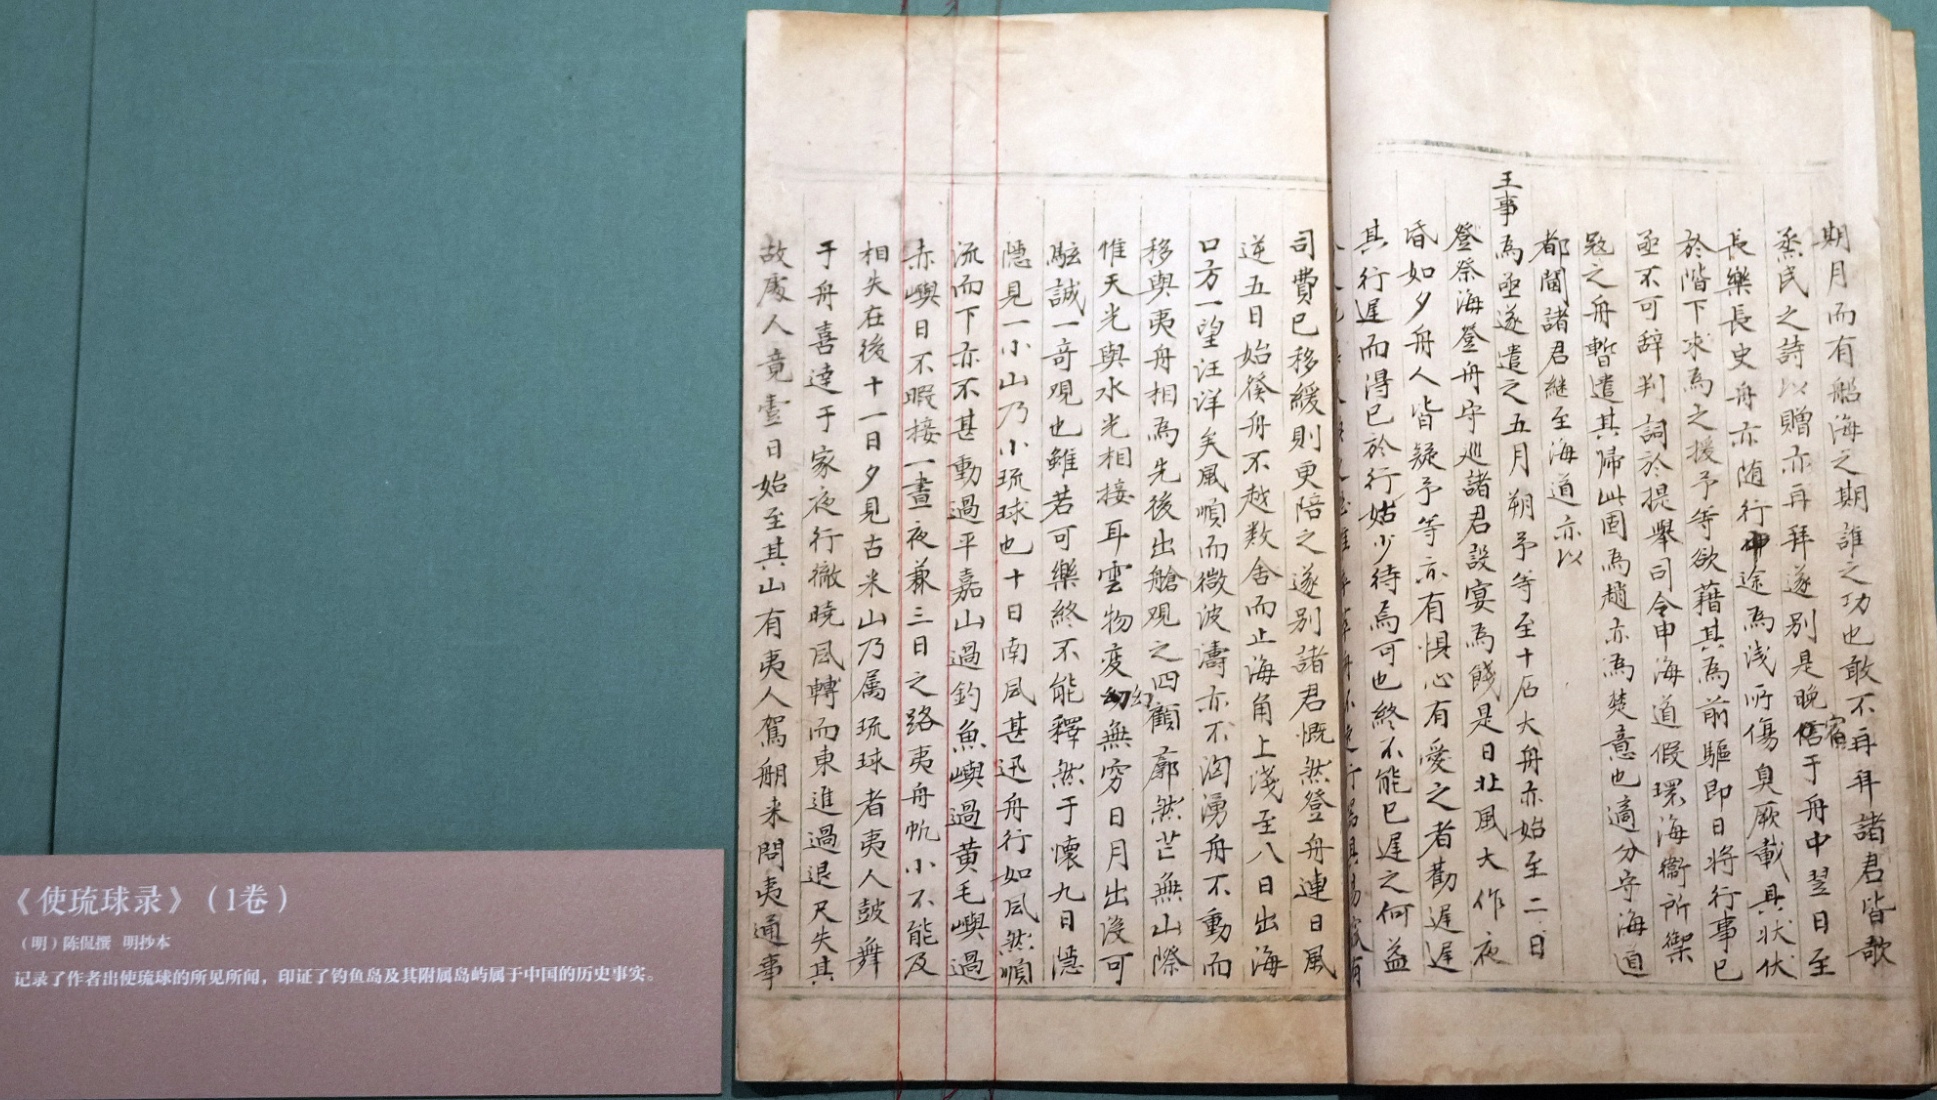 期月而有船海之期誰之功也敢不再拜諸君皆歌
烝民之詩以贈亦再拜遂別是晚宿于舟中翌日至
長樂長史舟亦随行中途為浅所傷臭厥載具状伏
於階下求為之援予等欲藉其為前驅即日将行事已
亟不可辞判詞於提舉司令申海道假環海衞所禦
冦之舟暫遣其帰此固為趙亦為楚意也適分守海道
都閫諸君継至海道亦以
王事為亟遂遣之五月朔予等至十石大舟亦始至二日
登祭海登舟守巡諸君設宴為餞是日北風大作夜
昏如夕舟人皆疑予等亦有惧心有愛之者勸遅遅
其行遅而得已於行姑少待焉可也終不能已遅之何益
司費已移緩則更陪之遂别諸君慨然登舟連日風
逆五日始發舟不越数舍而止海角上淺至八日出海
口方一望汪洋矣風順而微波濤亦不洶湧舟不動而
移與夷舟相為先後出艙观之四顧廓然茫無山際
惟天光與水光相接耳雲物变幻無穷日月出没可
駭誠一奇观也雖若可樂終不能釋然于懷九日隱
隱見一小山乃小琉球也十日南風甚迅舟行如風然順
流而下亦不甚動過平嘉山過釣魚嶼過黄毛嶼過
赤嶼目不暇接一晝夜兼三日之路夷舟帆小不能及
相失在後十一日夕見古米山乃属琉球者夷人鼓舞
于舟喜達于家夜行徹曉風轉而東進過退尺失其
故處人竟壹日始至其山有夷人駕舡来問夷通事
《使琉球录》（1卷）
（明）陈侃撰 明抄本
记录了作者出使琉球的所见所闻，印证了钓鱼岛及其附属岛屿属于中国的历史事实。